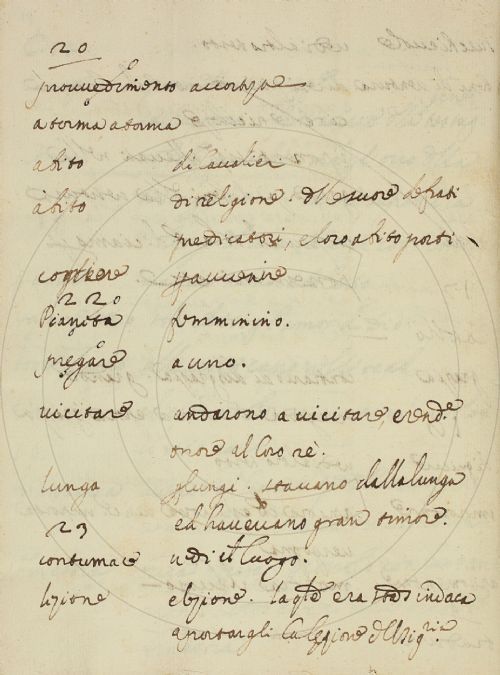 20
provvedimento accortezza
a torma a torma
abito di cavalier
abito di religione. delle suore de frati
predicatori, e loro abito porti
avvenire
220
Pianeta femminino.
pregare a uno.
vicitare andarono a vicitare, e rend.e
onore al loro rè.
lunga glungi. stavano dalla lunga
ed havevano gran timore.
23
contumace vedi il luogo.
lezione elezione. la qle era sindaca
a portargli la lezione